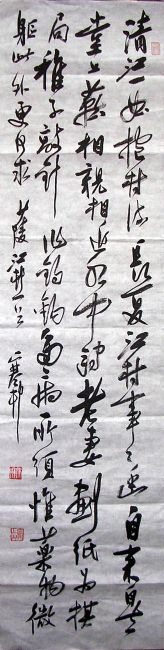 清江一曲抱村流長夏江村事々幽自来自去
堂上燕相親相近水中鷗老妻劃紙為棋
局稚子敲針作釣鉤多病所須惟藥物微
軀此外更何求 杜陵江村一首 寒邨